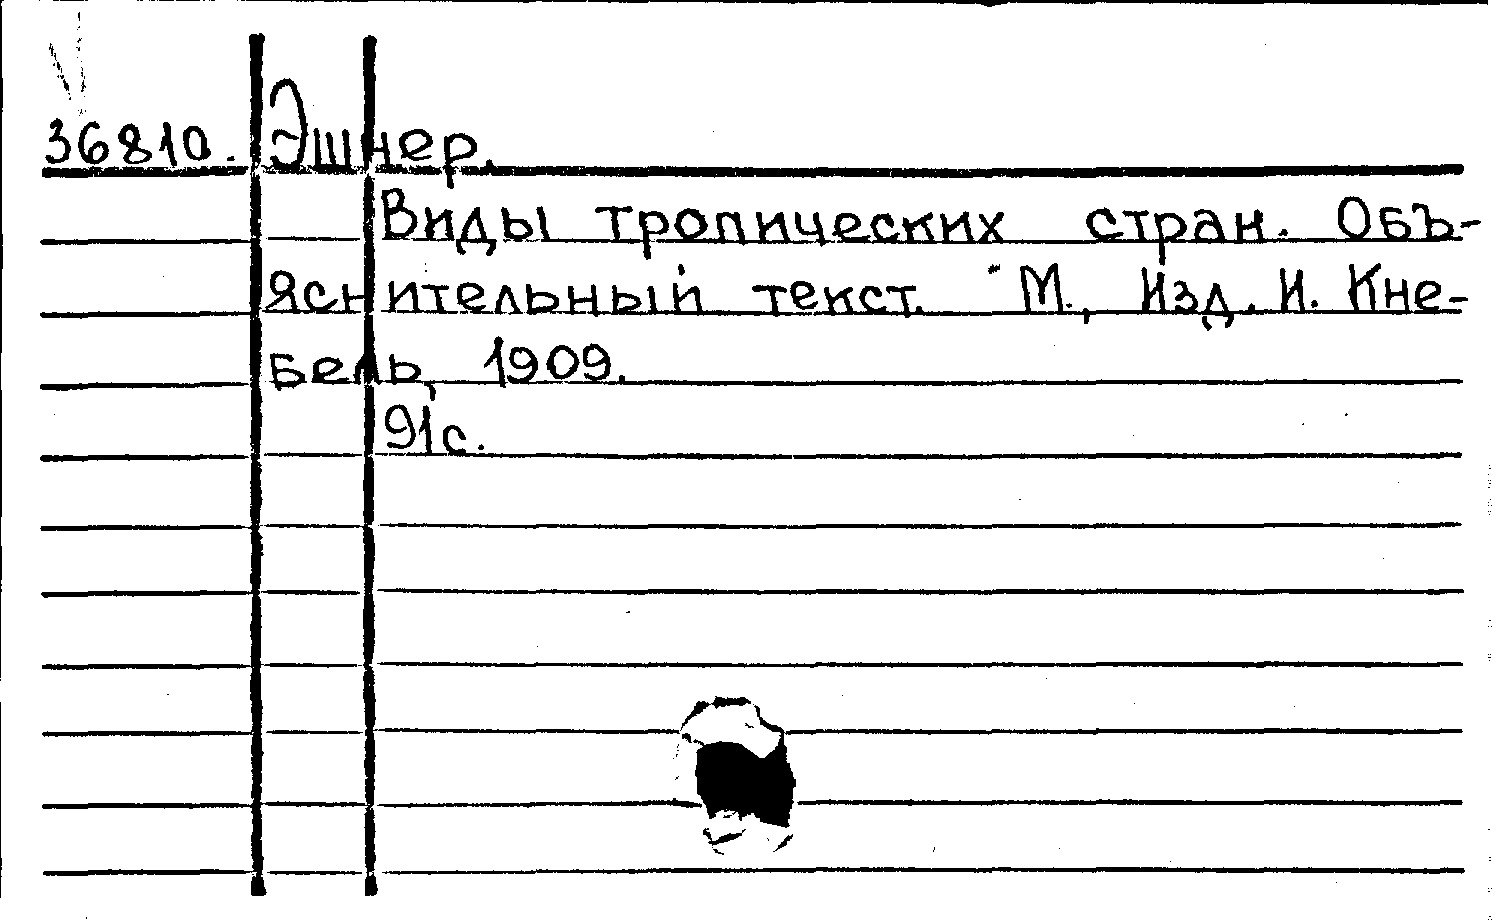 36810. Эшнер.
Виды тропических стран. Объ-
яснительный текст. М., Изд. И. Кне-
бель, 1909.
91с.